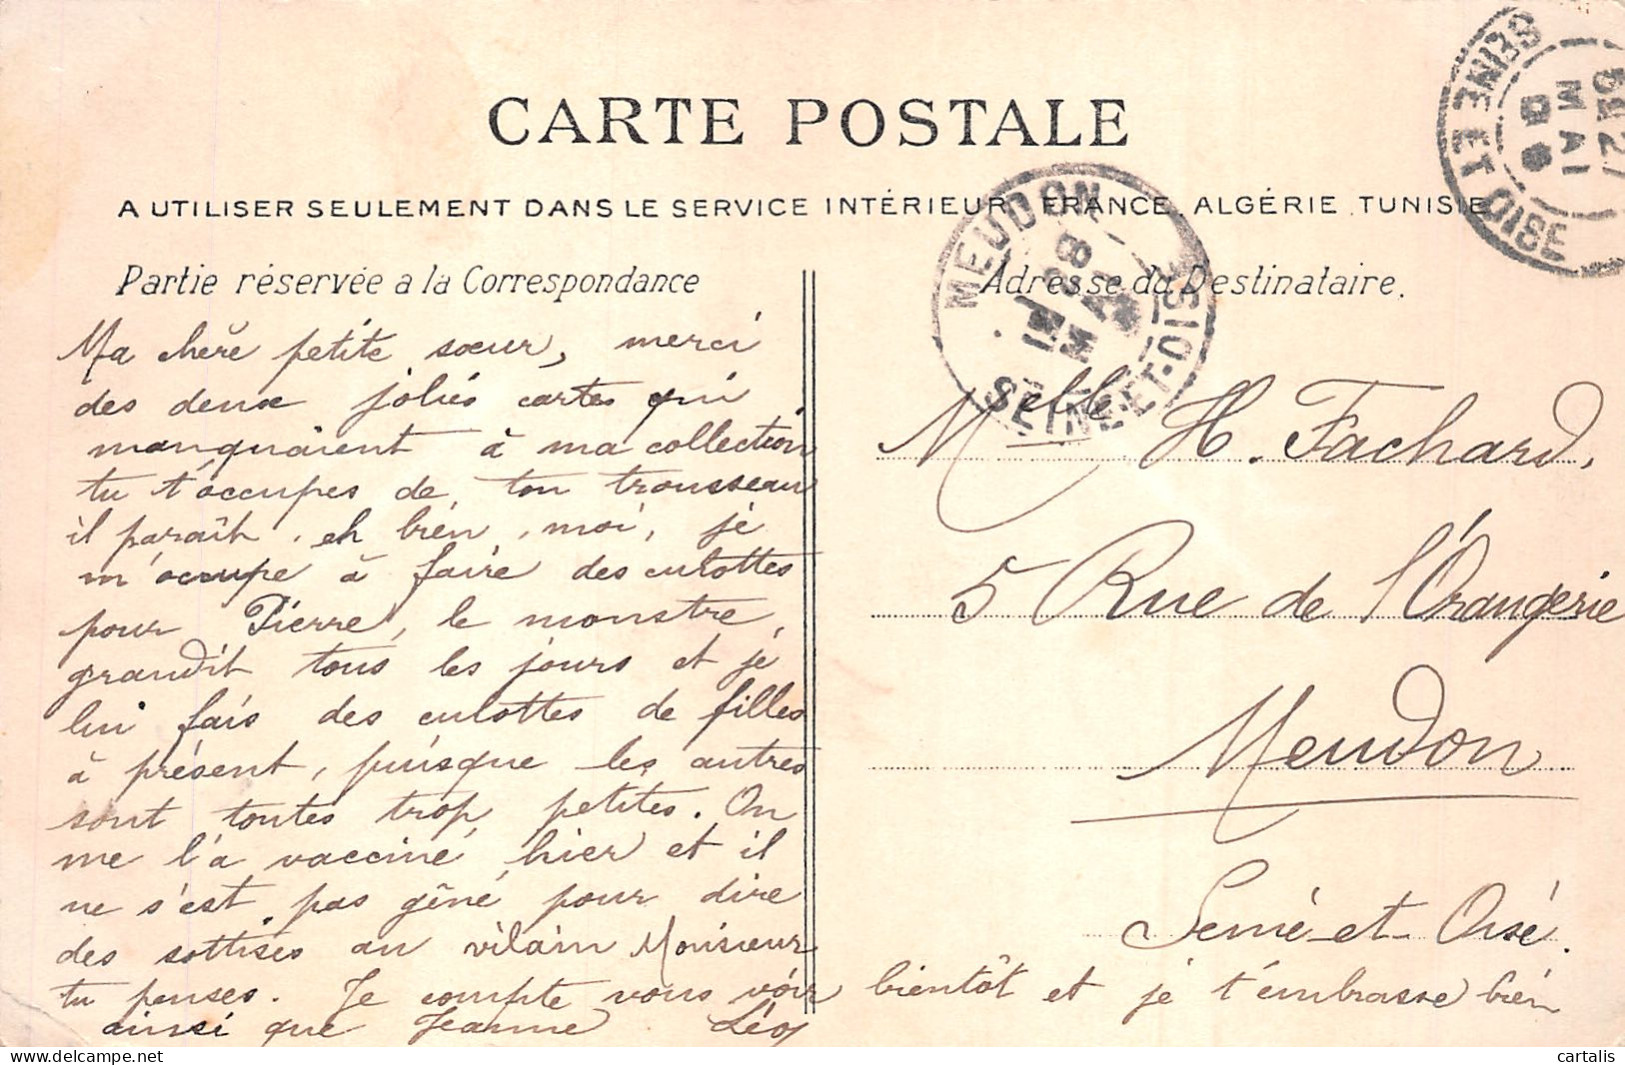 CARTE POSTALE
A UTILISER SEULEMENT DANS LE SERVICE INTÉRIEUR, FRANCE, ALGÉRIE, TUNISIE
SEINE ET OISE
MAI
MEUDON
SEINE-ET-OISE
Partie réservée a la Correspondance
Ma chère petite sœur, merci
des deux jolies cartes qui
manquaient à ma collection
tu t'occupes de ton trousseau
il paraît, eh bien, moi, je
m'occupe à faire des culottes
pour Pierre, le monstre,
grandit tous les jours et je
lui fais des culottes de filles
à présent, puisque les autres
sont toutes trop petites. On
me l'a vacciné hier et il
ne s'est pas gêné pour dire
des sottises au vilain Monsieur
tu penses. Je compte vous voir bientôt et je t'embrasse bien
ainsi que Jeanne
Adresse du Destinataire.
Melle H. Fachard,
5 Rue de l'Orangerie
Meudon
Seine-et-Oise.
cartalis